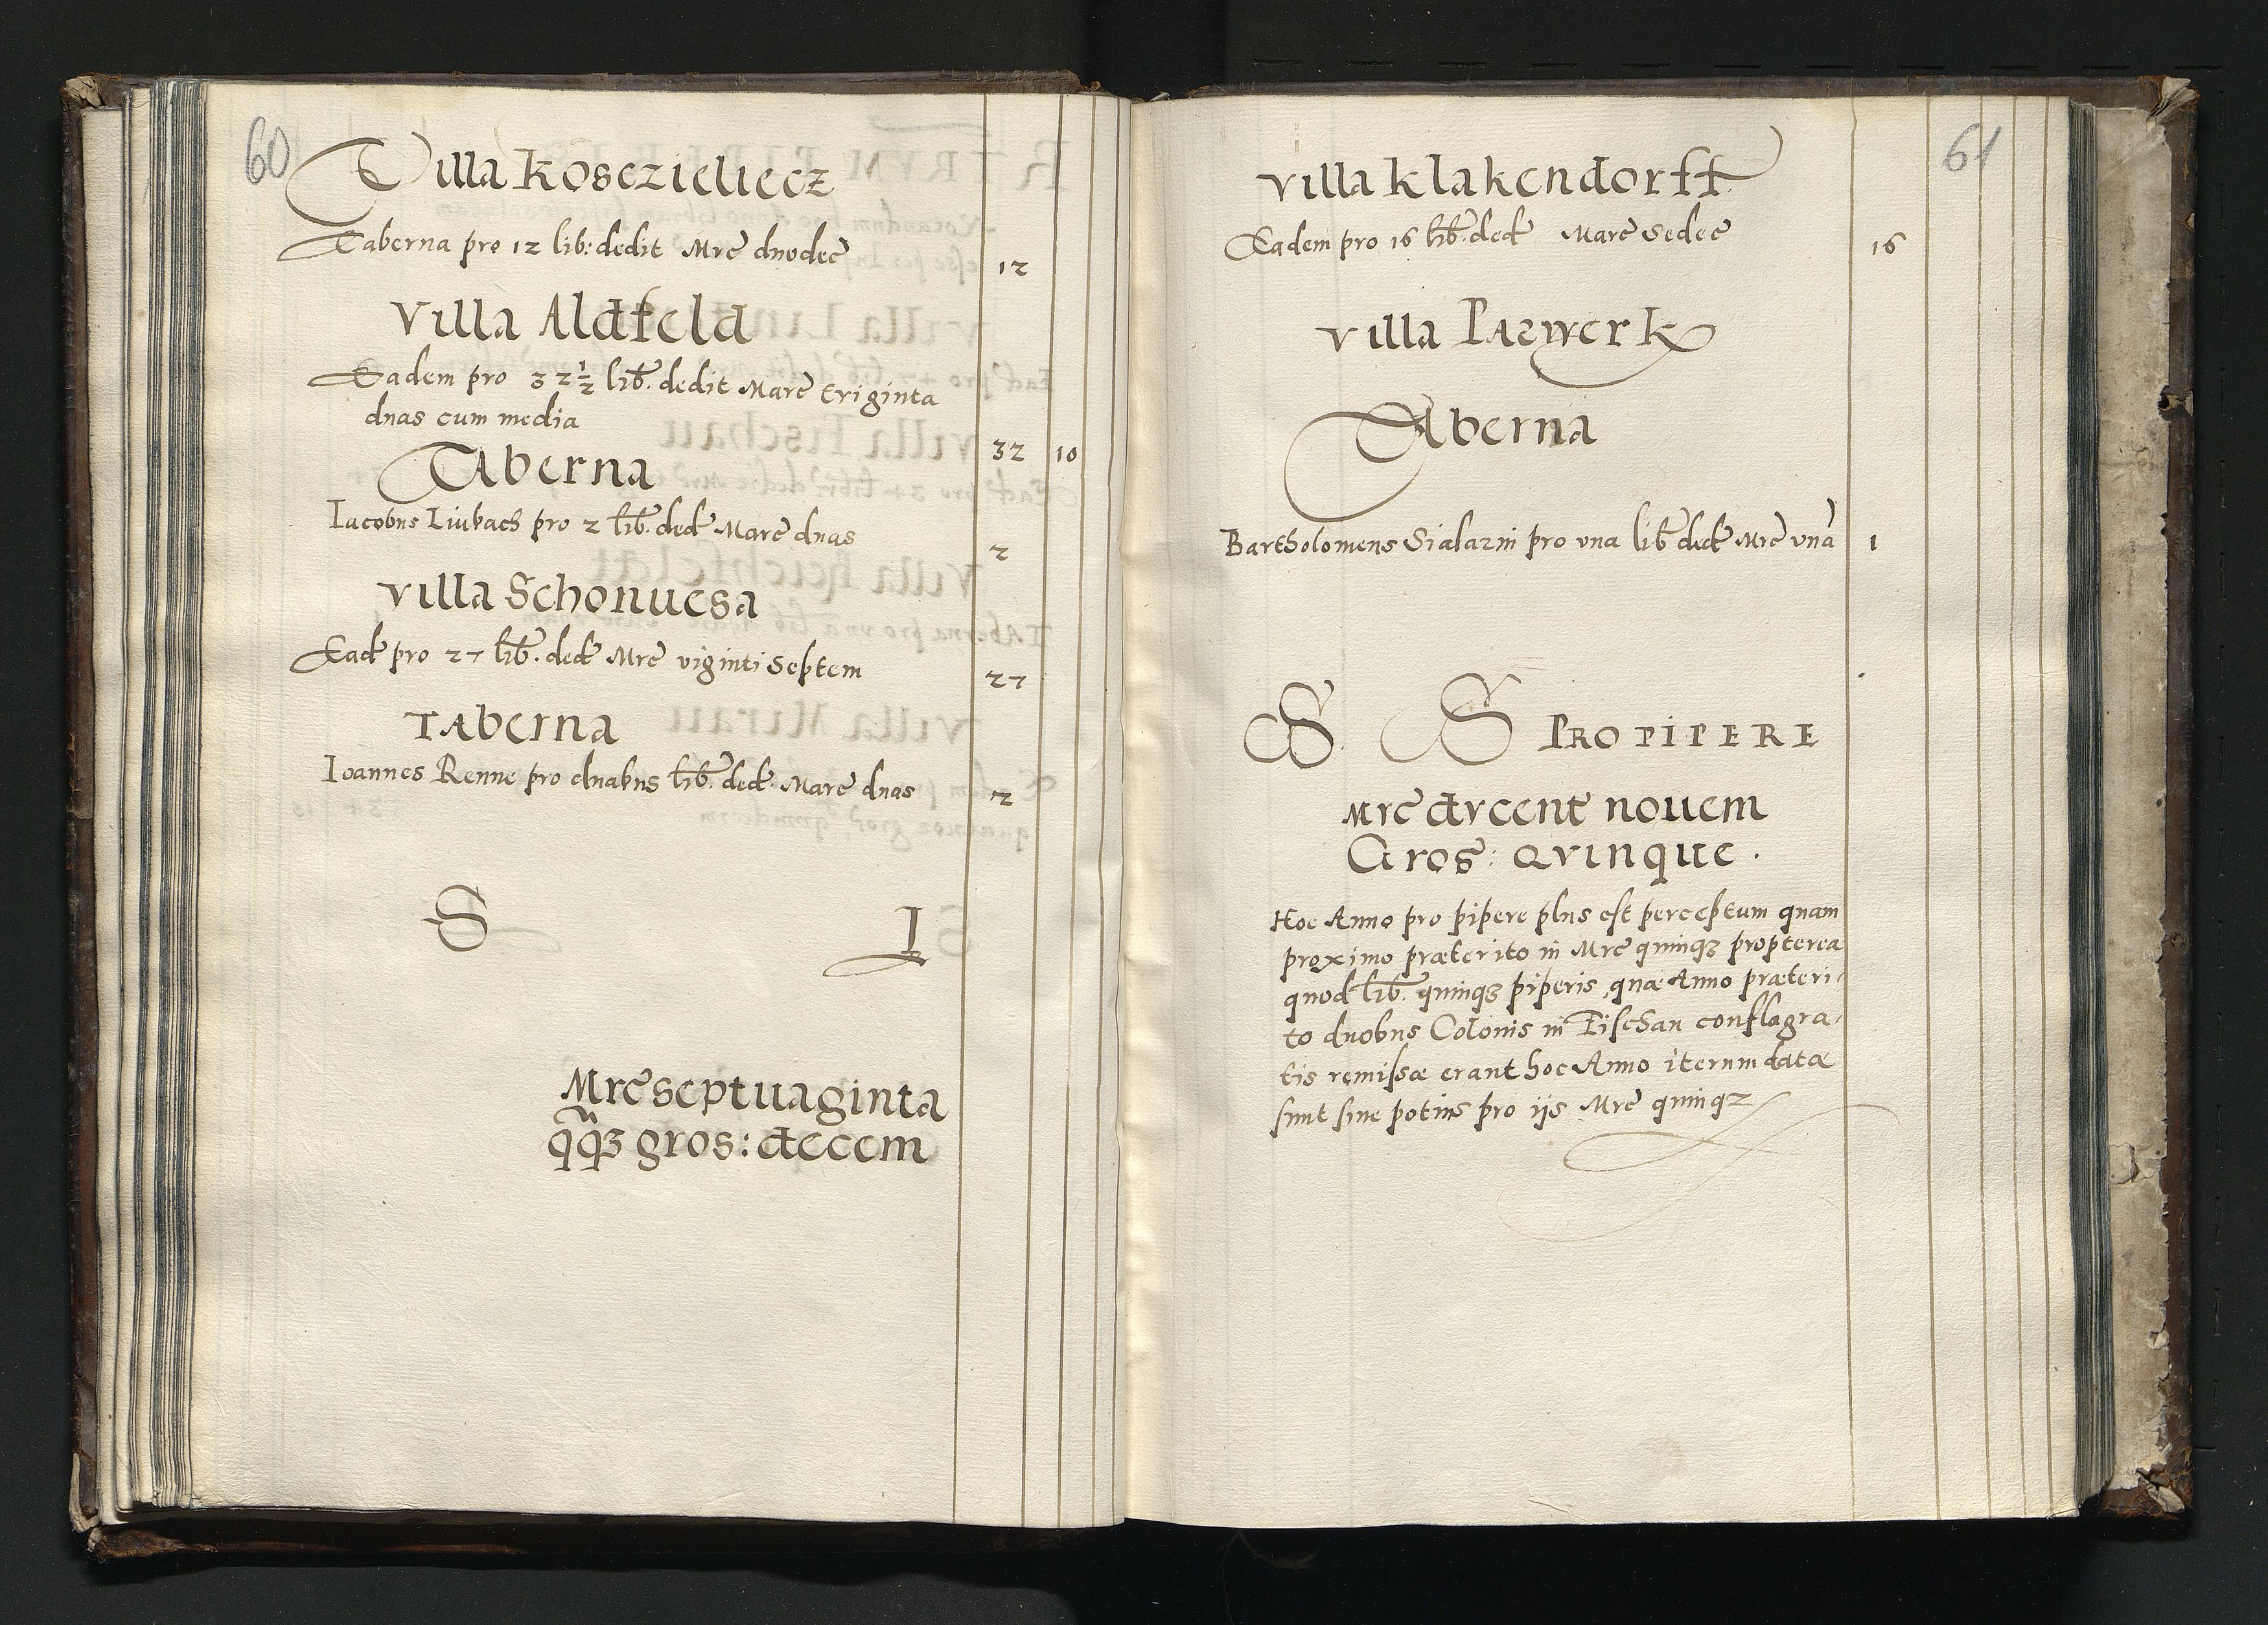 60
Villa Kosczieliecz
Taberna pro 12 lib: dedit Mrc̃ duodec̃ 12
Villa Aldfeld
Eadem pro 32 1/2 lib̃. dedit Marc̃ triginta
duas cum media 32 10
Taberna
Iacobus Liubach pro 2 lib̃. ded̃ Marc̃ duas 2
Villa Schonuesa
Ead̃ pro 27 lib̃. ded̃ Mrc̃ viginti Septem 27
Taberna
Ioannes Renne pro duabus lib̃. ded̃ Marc̃ duas 2
S I
Mrc̃ septuaginta
qq̃ꝫ gros: decem
61
Villa Klakendorff
Eadem pro 16 lib̃. ded̃ Marc̃ Sedec̃ 16
Villa Parwerk
Taberna
Bartholomeus pro vna lib̃ ded̃ Mrc̃ vnã 1
S. S PRO PIPERE
Mrc̃ dvcent̃ nouem
Gros̃: qvinque.
Hoc Anno pro pipere plus est perceptum quam
proximo præterito in Mrc̃ quinqꝫ propterea
quod lib̃. quinqꝫ piperis quæ Anno præteri-
to duobus Colonis in Fischau conflagra-
tis remissæ erant hoc Anno iterum datæ
sunt siue potius pro ijs Mrc̃ quinqꝫ